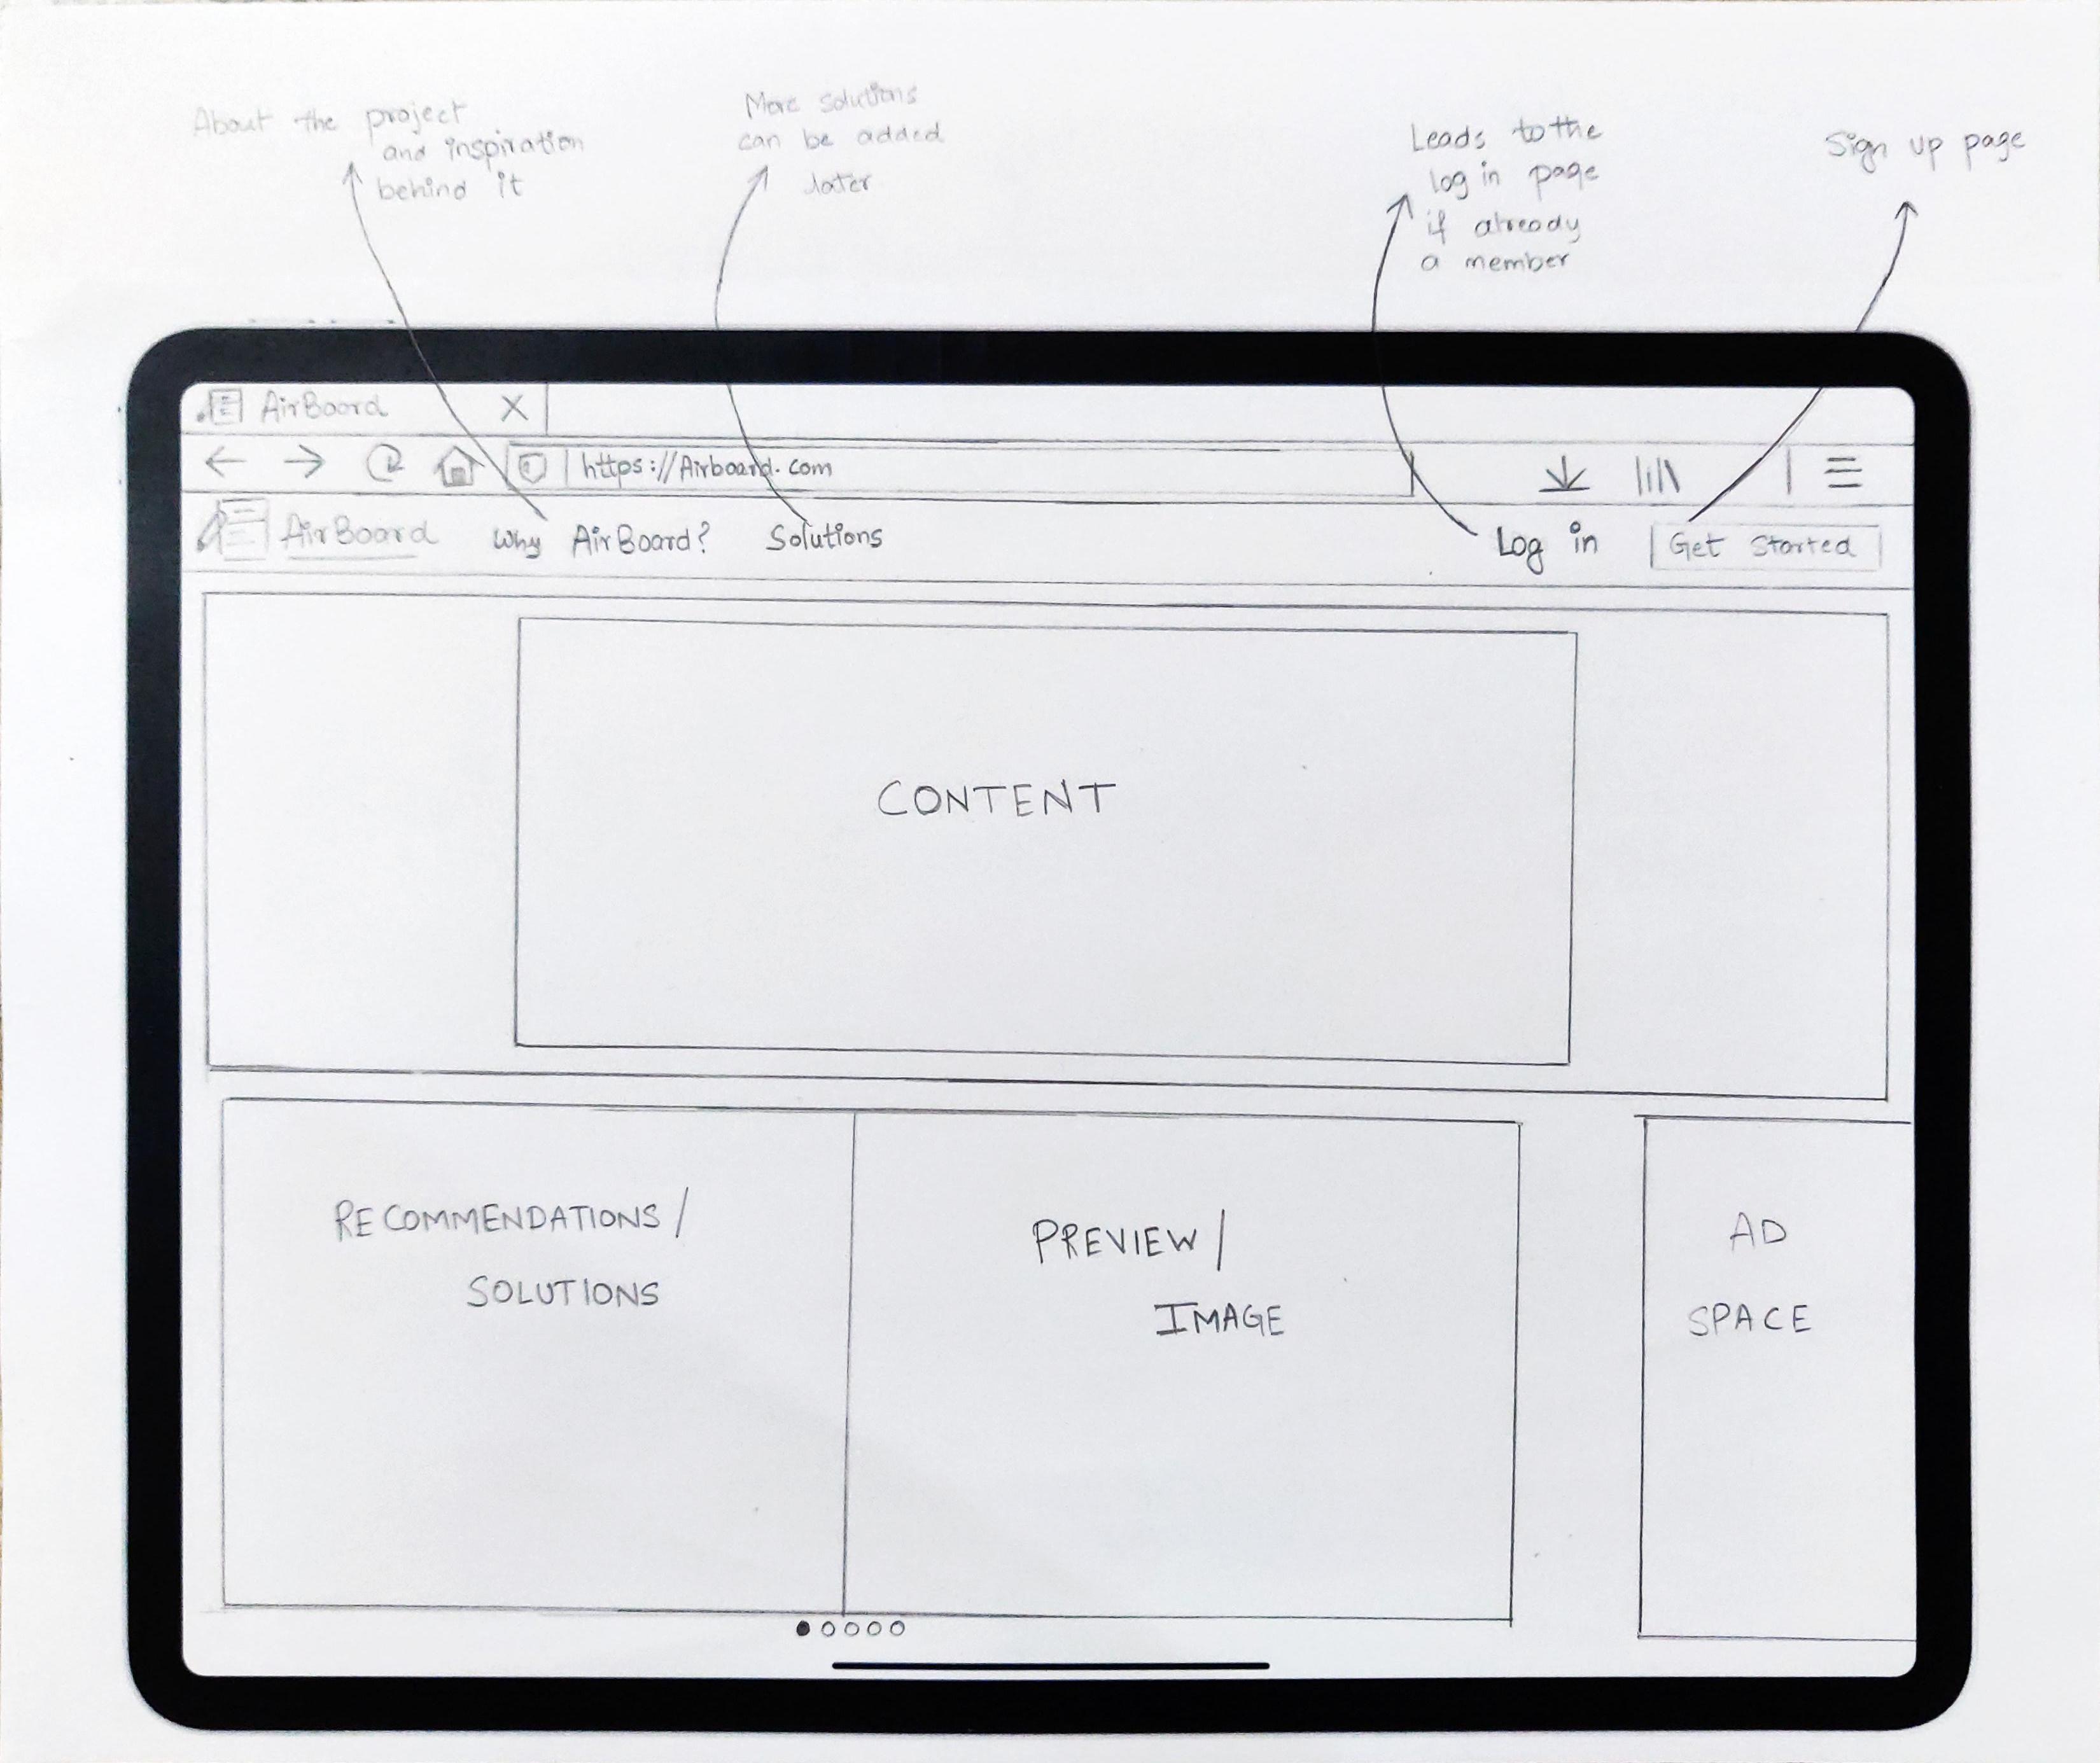 About the project
and inspiration
behind it
More solutions
can be added
later
Leads to the
log in page
if already
a member
Sign up page
AirBoard X
https://Airboard.com
AirBoard Why AirBoard? Solutions Log in Get Started
CONTENT
RECOMMENDATIONS/
SOLUTIONS
PREVIEW/
IMAGE
AD
SPACE